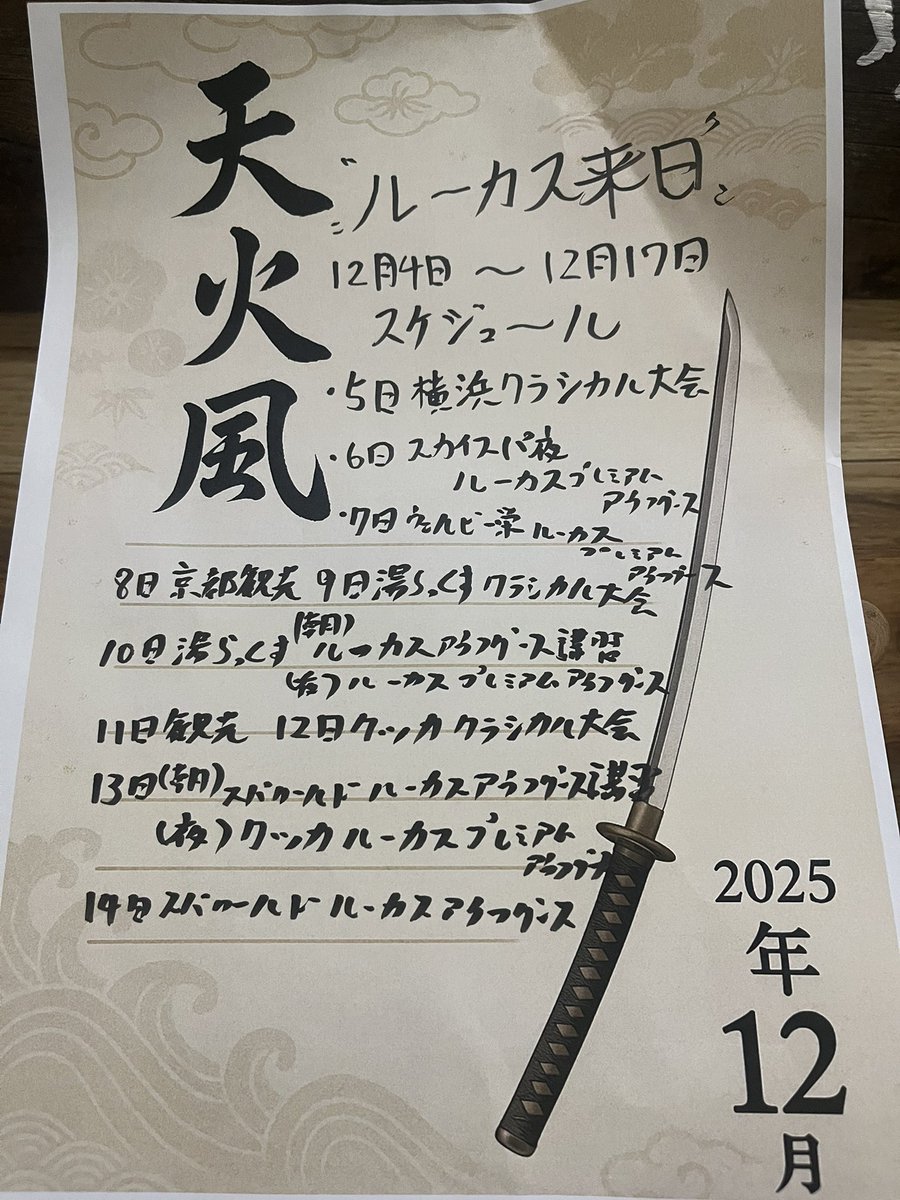 天火風
ルーカス来日
12月4日 〜 12月17日
スケジュール
・5日 横浜クラシカル大会
・6日 スカイスパ夜
ルーカスプレミアム
アウフグース
・7日 ウェルビー栄 ルーカス
プレミアム
アウフグース
8日 京都観光 9日 湯らっくす クラシカル大会
10日 湯らっくす (朝) ルーカスアウフグース講習
(夜) ルーカス プレミアム アウフグース
11日 観光 12日 クッカ クラシカル大会
13日 (朝) スパワールド ルーカスアウフグース講習
(夜) クッカ ルーカスプレミアム
アウフグース
14日 スパワールド ルーカス アウフグース
2025
年
12
月